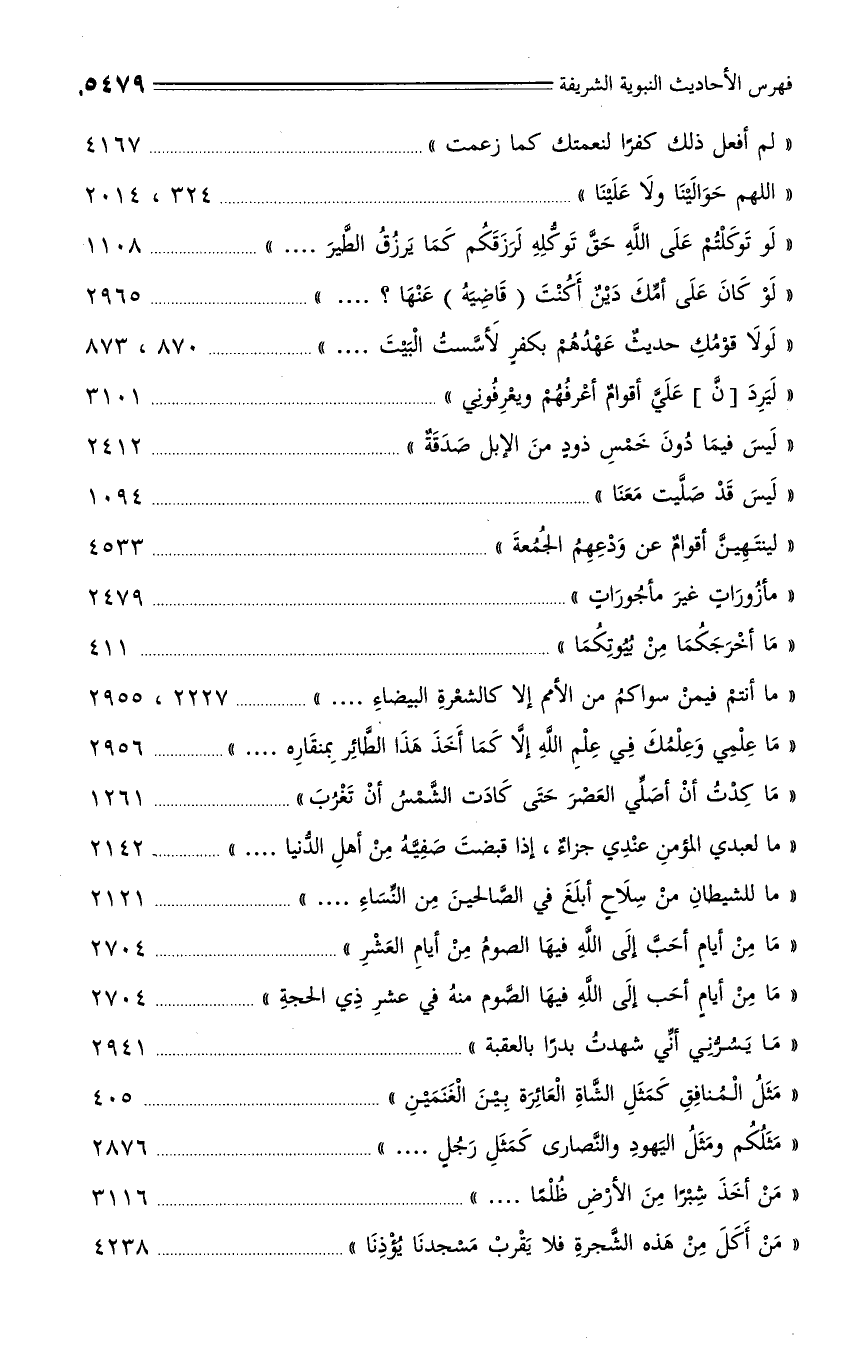 فهرس الأحاديث النبوية الشريفة ٥٤٧٩
« لم أفعل ذلك كفرًا لنعمتك كما زعمت » ٤١٦٧
« اللهم حَوَالَيْنَا ولَا عَلَيْنَا » ٣٢٤ ، ٢٠١٤
« لَو تَوَكَلْتُمْ عَلَى اللَّهِ حَقَّ تَوكُّلِهِ لَرَزَقَكُم كَمَا يَرزُقُ الطَّيرَ .... » ١١٠٨
« لَوْ كَانَ عَلَى أمِّكَ دَيْنٌ أَكُنْتَ ( قَاضِيَهُ ) عَنْهَا ؟ .... » ٢٩٦٥
« لَولَا قوْمُكِ حديثٌ عَهْدُهُمْ بكفرٍ لَأسَّستُ الْبَيْتَ .... » ٨٧٠ ، ٨٧٣
« لَيَرِدَ [ نَّ ] عَلَيَّ أقوامٌ أعْرفُهُمْ ويعْرِفُونِي » ٣١٠١
« لَيسَ فيمَا دُونَ خَمْسِ ذودٍ منَ الإبل صَدَقَةٌ » ٢٤١٢
« لَيسَ قَدْ صَلَّيت مَعَنَا » ١٠٩٤
« لينتَهِينَّ أقوامٌ عن وَدْعِهِمُ الجُمُعةَ » ٤٥٣٣
« مأزُورَاتٍ غيرَ مأجُورَاتٍ » ٢٤٧٩
« مَا أخْرَجَكُمَا مِنْ بُيُوتِكُمَا » ٤١١
« ما أنتمْ فيمنْ سواكمُ من الأمم إلا كالشعْرةِ البيضاءِ .... » ٢٢٢٧ ، ٢٩٥٥
« مَا عِلْمِي وَعِلْمُكَ فِي عِلْمِ اللَّهِ إلَّا كَمَا أَخَذَ هَذَا الطَّائِر بِمنقَارِه .... » ٢٩٥٦
« مَا كِدْتُ أنْ أصَلِّي العَصْرَ حَتَى كَادَت الشَّمْسُ أنْ تَغْرُبَ » ١٢٦١
« ما لعبدي المؤمنِ عنْدِي جزاءٌ ، إذا قبضتَ صَفِيَّهُ مِنْ أهلِ الدُّنيا .... » ٢١٤٢
« ما للشيطانِ منْ سِلَاحٍ أبلَغَ في الصَّالحينَ مِن النِّسَاءِ .... » ٢١٢١
« مَا مِنْ أيامٍ أحَبَّ إلَى اللَّهِ فيهَا الصومُ مِنْ أيامِ العَشْرِ » ٢٧٠٤
« مَا مِنْ أيامٍ أحَب إلَى اللَّهِ فيهَا الصَّوم منهُ في عشرِ ذِي الحجةِ » ٢٧٠٤
« مَا يَسُرُّنِي أنِّي شهدتُ بدرًا بالعقبة » ٢٩٤١
« مَثَلُ الْمُنافِقِ كَمَثَلِ الشَّاةِ الْعَائِرَة بِيْنَ الْغَنَمَيْنِ » ٤٠٥
« مَثَلُكُم ومَثَلُ اليَهودِ والنَّصارى كَمَثَلِ رَجُلٍ .... » ٢٨٧٦
« مَنْ أخَذَ شِبْرًا مِنَ الأرْضِ ظُلْمًا .... » ٣١١٦
« مَنْ أَكَلَ مِنْ هَذه الشَّجرةِ فلا يَقْربْ مَسْجدنَا يُؤْذِنَا » ٤٢٣٨